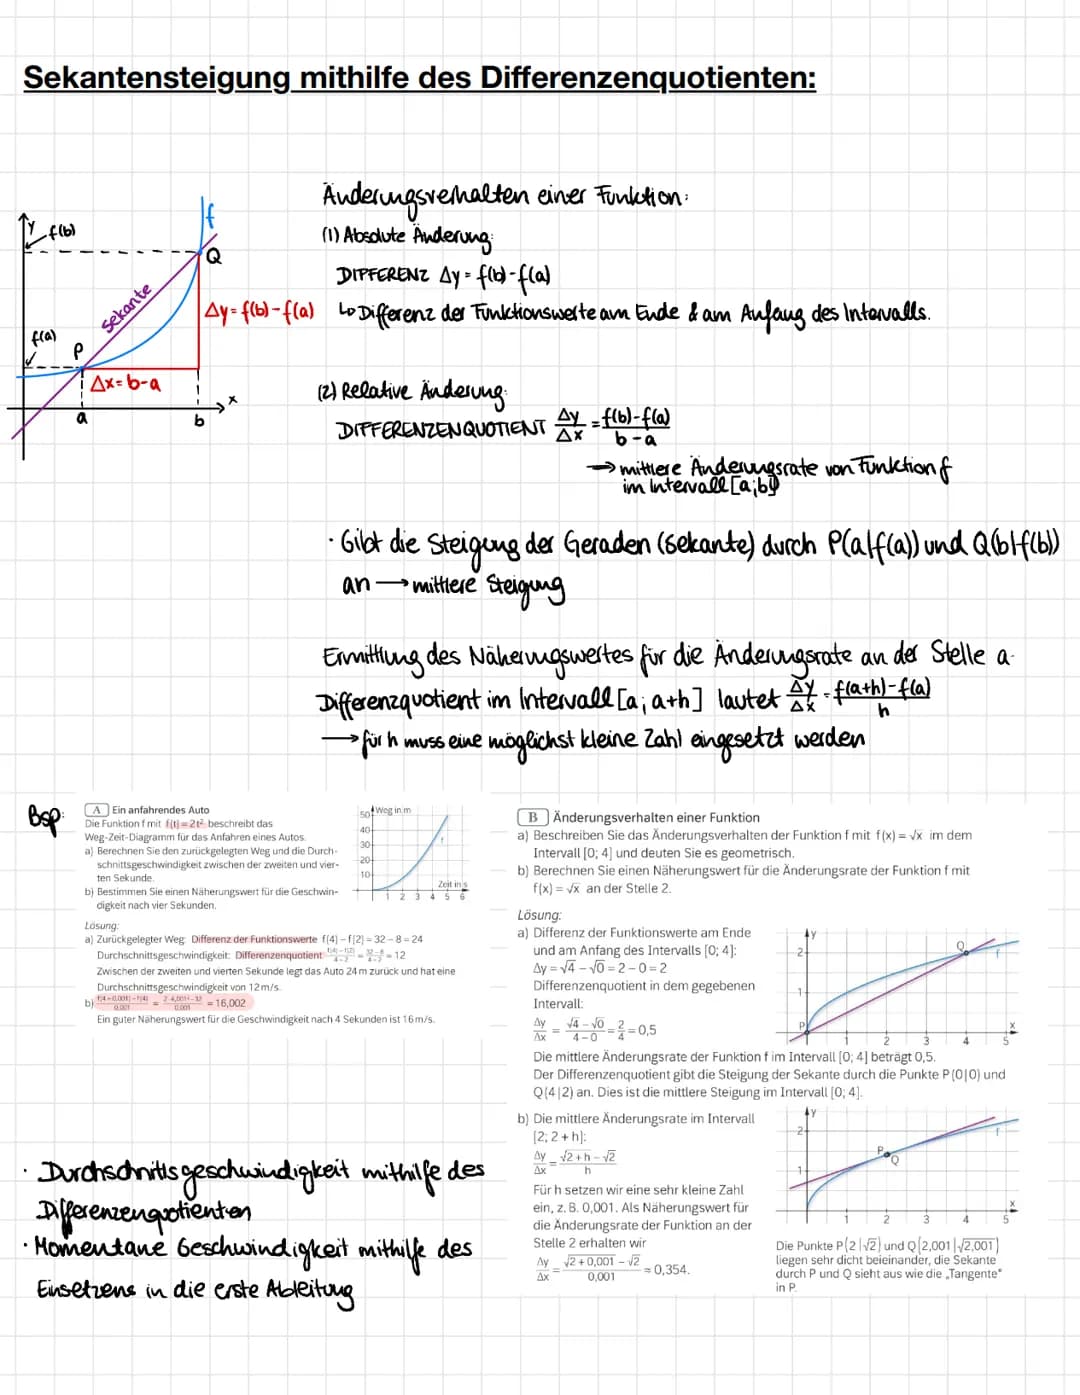 Sekantensteigung mithilfe des Differenzenquotienten:
y
f(b)
f
Q
Sekante
Δy = f(b) - f(a)
f(a)
P
Δx = b-a
x
a
b
Änderungsverhalten einer Funktion:
(1) Absolute Änderung:
DIFFERENZ Δy = f(b) - f(a)
↳ Differenz der Funktionswerte am Ende & am Anfang des Intervalls.
(2) Relative Änderung:
DIFFERENZENQUOTIENT Δy/Δx = f(b)-f(a)/b-a
→ mittlere Änderungsrate von Funktion f
im Intervall [a;b]
· Gibt die Steigung der Geraden (Sekante) durch P(a|f(a)) und Q(b|f(b))
an → mittlere Steigung
Ermittlung des Näherungswertes für die Änderungsrate an der Stelle a.
Differenzquotient im Intervall [a; a+h] lautet Δy/Δx = f(a+h)-f(a)/h
→ für h muss eine möglichst kleine Zahl eingesetzt werden
Bsp:
A Ein anfahrendes Auto
Die Funktion f mit f(t) = 2t² beschreibt das
Weg-Zeit-Diagramm für das Anfahren eines Autos.
a) Berechnen Sie den zurückgelegten Weg und die Durch-
schnittsgeschwindigkeit zwischen der zweiten und vier-
ten Sekunde.
b) Bestimmen Sie einen Näherungswert für die Geschwin-
digkeit nach vier Sekunden.
Weg in m
50
40
30
20
10
f
Zeit in s
1 2 3 4 5 6
Lösung:
a) Zurückgelegter Weg: Differenz der Funktionswerte f(4) - f(2) = 32 - 8 = 24
Durchschnittsgeschwindigkeit: Differenzenquotient f(4)-f(2)/4-2 = 32-8/4-2 = 12
Zwischen der zweiten und vierten Sekunde legt das Auto 24 m zurück und hat eine
Durchschnittsgeschwindigkeit von 12 m/s.
b) f(4+0,001)-f(4)/0,001 = 2·4,001²-32/0,001 = 16,002
Ein guter Näherungswert für die Geschwindigkeit nach 4 Sekunden ist 16 m/s.
· Durchschnittsgeschwindigkeit mithilfe des
Differenzenquotienten
· Momentane Geschwindigkeit mithilfe des
Einsetzens in die erste Ableitung
B Änderungsverhalten einer Funktion
a) Beschreiben Sie das Änderungsverhalten der Funktion f mit f(x) = √x im dem
Intervall [0; 4] und deuten Sie es geometrisch.
b) Berechnen Sie einen Näherungswert für die Änderungsrate der Funktion f mit
f(x) = √x an der Stelle 2.
Lösung:
a) Differenz der Funktionswerte am Ende
und am Anfang des Intervalls [0; 4]:
Δy = √4 - √0 = 2 - 0 = 2
Differenzenquotient in dem gegebenen
Intervall:
Δy/Δx = √4 - √0/4 - 0 = 2/4 = 0,5
y
2
1
P
Q
f
x
1 2 3 4 5
Die mittlere Änderungsrate der Funktion f im Intervall [0; 4] beträgt 0,5.
Der Differenzenquotient gibt die Steigung der Sekante durch die Punkte P(0|0) und
Q(4|2) an. Dies ist die mittlere Steigung im Intervall [0; 4].
b) Die mittlere Änderungsrate im Intervall
[2; 2 + h]:
Δy/Δx = √2 + h - √2/h
Für h setzen wir eine sehr kleine Zahl
ein, z. B. 0,001. Als Näherungswert für
die Änderungsrate der Funktion an der
Stelle 2 erhalten wir
Δy/Δx = √2 + 0,001 - √2/0,001 ≈ 0,354.
y
2
1
P
Q
f
x
1 2 3 4 5
Die Punkte P(2|√2) und Q(2,001|√2,001)
liegen sehr dicht beieinander, die Sekante
durch P und Q sieht aus wie die „Tangente“
in P.